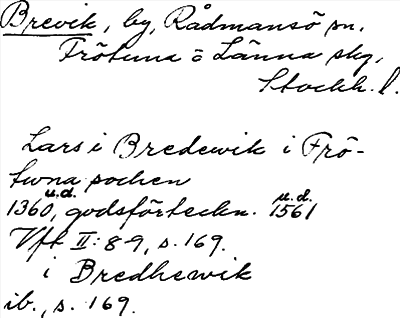 Brevik, by, Rådmansö sn.
Frötuna o Länna skg,
Stockh. l.
Lars i Bredewik i Frö-
tuna sochen
1360 u.d., godsförteckn. 1561 u.d.
Vft II: 8-9, s. 169.
i Bredhewik
ib., s. 169.